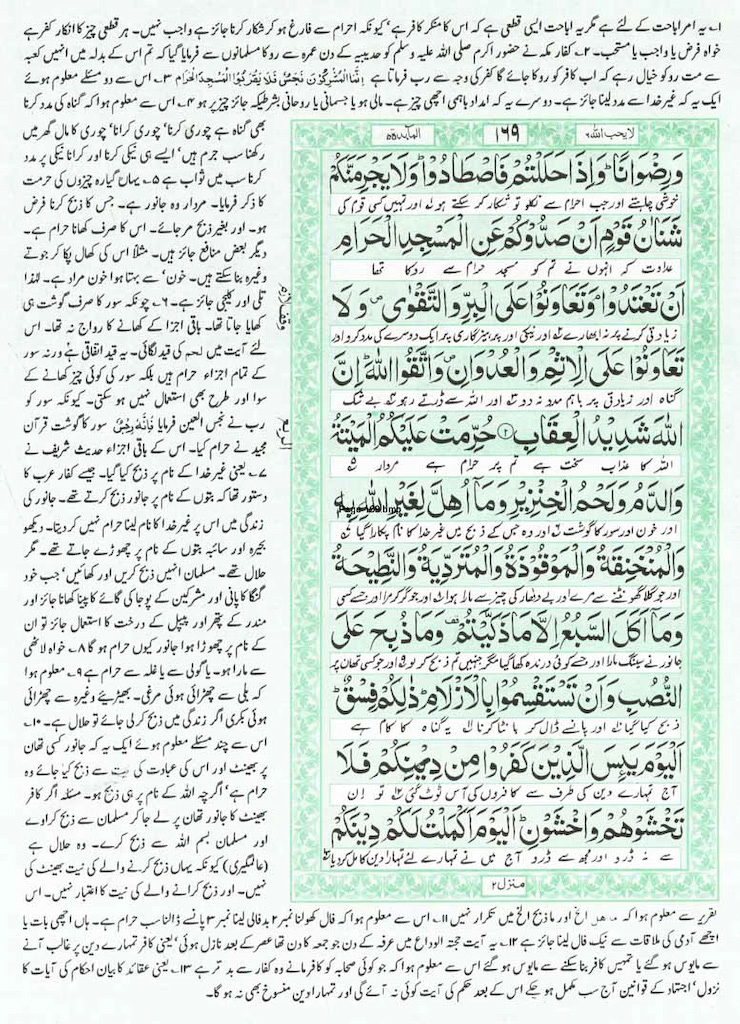 ۱۔ یہ امر اباحت کے لئے ہے مگر یہ اباحت ایسی قطعی ہے کہ اس کا منکر کافر ہے' کیونکہ احرام سے فارغ ہو کر شکار کرنا جائز ہے واجب نہیں۔ ہر قطعی چیز کا انکار کفر ہے
خواہ فرض یا واجب یا مستحب۔ ۲۔ کفار مکہ نے حضور اکرم صلی اللہ علیہ وسلم کو حدیبیہ کے دن عمرہ سے روکا مسلمانوں سے فرمایا گیا کہ تم اس کے بدلہ میں انہیں کعبہ
سے مت روکو خیال رہے کہ اب کافر کو روکا جائے گا کفر کی وجہ سے رب فرماتا ہے اِنَّمَا الْمُشْرِكُوْنَ نَجَسٌ فَلَا يَقْرَبُوا الْمَسْجِدَ الْحَرَامَ ۳۔ اس سے دو مسئلے معلوم ہوئے
ایک یہ کہ غیر خدا سے مدد لینا جائز ہے۔ دوسرے یہ کہ امداد باہمی اچھی چیز ہے۔ مالی ہو یا جسمانی یا روحانی بشرطیکہ جائز چیز پر ہو ۴۔ اس سے معلوم ہوا کہ گناہ کی مدد کرنا
لا یحب اللہ ۶
۱۶۹
المآئدۃ ۵
وَرِضْوَانًا ۭ وَاِذَا حَلَلْتُمْ فَاصْطَادُوْا ۭ وَلَا يَجْرِمَنَّكُمْ
خوشی چاہتے اور جب احرام سے نکلو تو شکار کر سکتے ہو اور تمہیں کسی قوم کی
شَنَاٰنُ قَوْمٍ اَنْ صَدُّوْكُمْ عَنِ الْمَسْجِدِ الْحَرَامِ
عداوت کہ انہوں نے تم کو مسجد حرام سے روکا تھا
اَنْ تَعْتَدُوْا ۘ وَتَعَاوَنُوْا عَلَى الْبِرِّ وَالتَّقْوٰى ۠ وَلَا
زیادتی کرنے پر نہ ابھارے اور نیکی اور پرہیزگاری پر ایک دوسرے کی مدد کرو اور
تَعَاوَنُوْا عَلَى الْاِثْمِ وَالْعُدْوَانِ ۠ وَاتَّقُوا اللهَ ۭ اِنَّ
گناہ اور زیادتی پر باہم مدد نہ دو اور اللہ سے ڈرتے رہو بے شک
اللهَ شَدِيْدُ الْعِقَابِ ۝۲ حُرِّمَتْ عَلَيْكُمُ الْمَيْتَةُ
اللہ کا عذاب سخت ہے تم پر حرام ہے مردار
وَالدَّمُ وَلَحْمُ الْخِنْزِيْرِ وَمَآ اُهِلَّ لِغَيْرِ اللهِ بِهٖ
Page-169.bmp
اور خون اور سور کا گوشت اور وہ جس کے ذبح میں غیر خدا کا نام پکارا گیا
وَالْمُنْخَنِقَةُ وَالْمَوْقُوْذَةُ وَالْمُتَرَدِّيَةُ وَالنَّطِيْحَةُ
اور جو گلا گھونٹنے سے مرے اور بے دھار کی چیز سے مارا ہوا اور جو گر کر مرا اور جسے کسی
وَمَآ اَكَلَ السَّبُعُ اِلَّا مَا ذَكَّيْتُمْ ۣ وَمَا ذُبِحَ عَلَى
جانور نے سینگ مارا اور جسے کوئی درندہ کھا گیا مگر جنہیں تم ذبح کر لو اور جو کسی تھان پر
النُّصُبِ وَاَنْ تَسْتَقْسِمُوْا بِالْاَزْلَامِ ۭ ذٰلِكُمْ فِسْقٌ ۭ
ذبح کیا گیا اور پانسے ڈال کر بانٹا کرنا یہ گناہ کا کام ہے
اَلْيَوْمَ يَئِسَ الَّذِيْنَ كَفَرُوْا مِنْ دِيْنِكُمْ فَلَا
آج تمہارے دین کی طرف سے کافروں کی آس ٹوٹ گئی تو ان
تَخْشَوْهُمْ وَاخْشَوْنِ ۭ اَلْيَوْمَ اَكْمَلْتُ لَكُمْ دِيْنَكُمْ
سے نہ ڈرو اور مجھ سے ڈرو آج میں نے تمہارے لئے تمہارا دین کامل کر دیا
منزل ۲
بھی گناہ ہے چوری کرنا' چوری کرانا' چوری کا مال گھر میں
رکھنا سب جرم ہیں' ایسے ہی نیکی کرنا اور کرانا نیکی پر مدد
کرنا سب میں ثواب ہے ۵۔ یہاں گیارہ چیزوں کی حرمت
کا ذکر فرمایا۔ مردار وہ جانور ہے۔ جس کا ذبح کرنا فرض
ہو۔ اور بغیر ذبح مر جائے۔ اس کا صرف کھانا حرام ہے۔
دیگر بعض منافع جائز ہیں۔ مثلاً اس کی کھال پکا کر جوتے
وغیرہ بنا سکتے ہیں۔ خون' سے بہتا ہوا خون مراد ہے۔ لہٰذا
تلی اور کلیجی جائز ہے۔ ۶۔ چونکہ سور کا صرف گوشت ہی
کھایا جاتا تھا۔ باقی اجزا کے کھانے کا رواج نہ تھا۔ اس
لئے آیت میں لحم کی قید لگائی۔ یہ قید اتفاقی ہے ورنہ سور
کے تمام اجزاء حرام ہیں بلکہ سور کی کوئی چیز کھانے کے
سوا اور طرح بھی استعمال نہیں ہو سکتی۔ کیونکہ سور کو
رب نے نجس العین فرمایا فَاِنَّهٗ رِجْسٌ سور کا گوشت قرآن
مجید نے حرام کیا۔ اس کے باقی اجزاء حدیث شریف نے
۷۔ یعنی غیر خدا کے نام پر ذبح کیا گیا۔ جیسے کفار عرب کا
دستور تھا کہ بتوں کے نام پر جانور ذبح کرتے تھے۔ جانور کی
زندگی میں اس پر غیر خدا کا نام لینا حرام نہیں کر دیتا۔ دیکھو
بحیرہ اور سائبہ بتوں کے نام پر چھوڑے جاتے تھے۔ مگر
حلال تھے۔ مسلمان انہیں ذبح کریں اور کھائیں' جب خود
گنگا کا پانی اور مشرکین کے پوجا کی گائے کا پینا کھانا جائز اور
مندر کے پتھر اور پیپل کے درخت کا استعمال جائز تو ان
کے نام پر چھوڑا ہوا جانور کیوں حرام ہو گا ۸۔ خواہ لاٹھی
سے مارا ہو۔ یا گولی سے یا غلہ سے حرام ہے ۹۔ معلوم ہوا
کہ بلی سے چھڑائی ہوئی مرغی۔ بھیڑیئے وغیرہ سے چھڑائی
ہوئی بکری اگر زندگی میں ذبح کر لی جائے تو حلال ہے۔ ۱۰۔
اس سے چند مسئلے معلوم ہوئے ایک یہ کہ جانور کسی تھان
پر بھینٹ اور اس کی عبادت کی نیت سے ذبح کیا جائے وہ
حرام ہے' اگرچہ اللہ کے نام پر ہی ذبح ہو۔ مسئلہ اگر کافر
بھینٹ کا جانور تھان پر لے جا کر مسلمان سے ذبح کراوے
اور مسلمان بسم اللہ سے ذبح کرے۔ وہ حلال ہے
(عالمگیری) کیونکہ یہاں ذبح کرنے والے کی نیت بھینٹ کی
نہیں۔ اور ذبح کرانے والے کی نیت کا اعتبار نہیں۔ اس
تقریر سے معلوم ہوا کہ ما اھل الخ اور ما ذبح الخ میں تکرار نہیں ۱۱۔ اس سے معلوم ہوا کہ فال کھولنا نمبر ۲ بدفالی لینا نمبر ۳ پانسے ڈالنا سب حرام ہے۔ ہاں اچھی بات یا
اچھے آدمی کی ملاقات سے نیک فال لینا جائز ہے ۱۲۔ یہ آیت حجۃ الوداع میں عرفہ کے دن جو جمعہ کا دن تھا عصر کے بعد نازل ہوئی' یعنی کافر تمہارے دین پر غالب آنے
سے مایوس ہو گئے یا تمہیں کافر بنا سکنے سے مایوس ہو گئے اس سے معلوم ہوا کہ جو کوئی صحابہ کو کافر مانے وہ کفار سے بدتر ہے ۱۳۔ یعنی عقائد کا بیان احکام کی آیات کا
نزول' اجتہاد کے قوانین آج سب مکمل ہو چکے اس کے بعد حکم کی آیت کوئی نہ آئے گی اور تمہارا دین منسوخ بھی نہ ہو گا۔